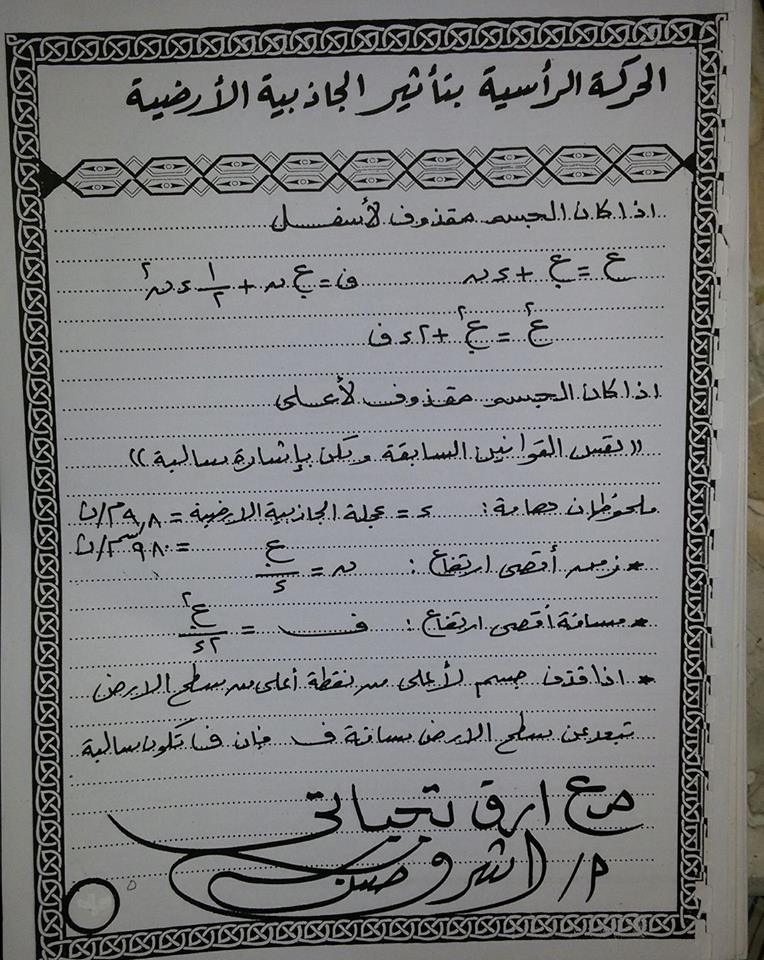 الحركة الرأسية بتأثير الجاذبية الأرضية
اذا كان الجسم مقذوف لأسفل
ع = ع. + ء ن    ف = ع. ن + ١/٢ ء ن²
ع² = ع.² + ٢ ء ف
اذا كان الجسم مقذوف لأعلى
(( نفس القوانين السابقة ولكن بإشارة سالبة ))
ملحوظات هامة : ء = عجلة الجاذبية الارضية = ٩,٨ م/ث²
= ٩٨٠ سم/ث²
* زمن أقصى ارتفاع : ن = ع./ء
* مسافة أقصى ارتفاع : ف = ع.²/٢ء
* اذا قذف جسم لأعلى من نقطة أعلى من سطح الارض
تبعد عن سطح الارض مسافة ف فان ف تكون سالبة
مع ارق تحياتى
م/ اشرف